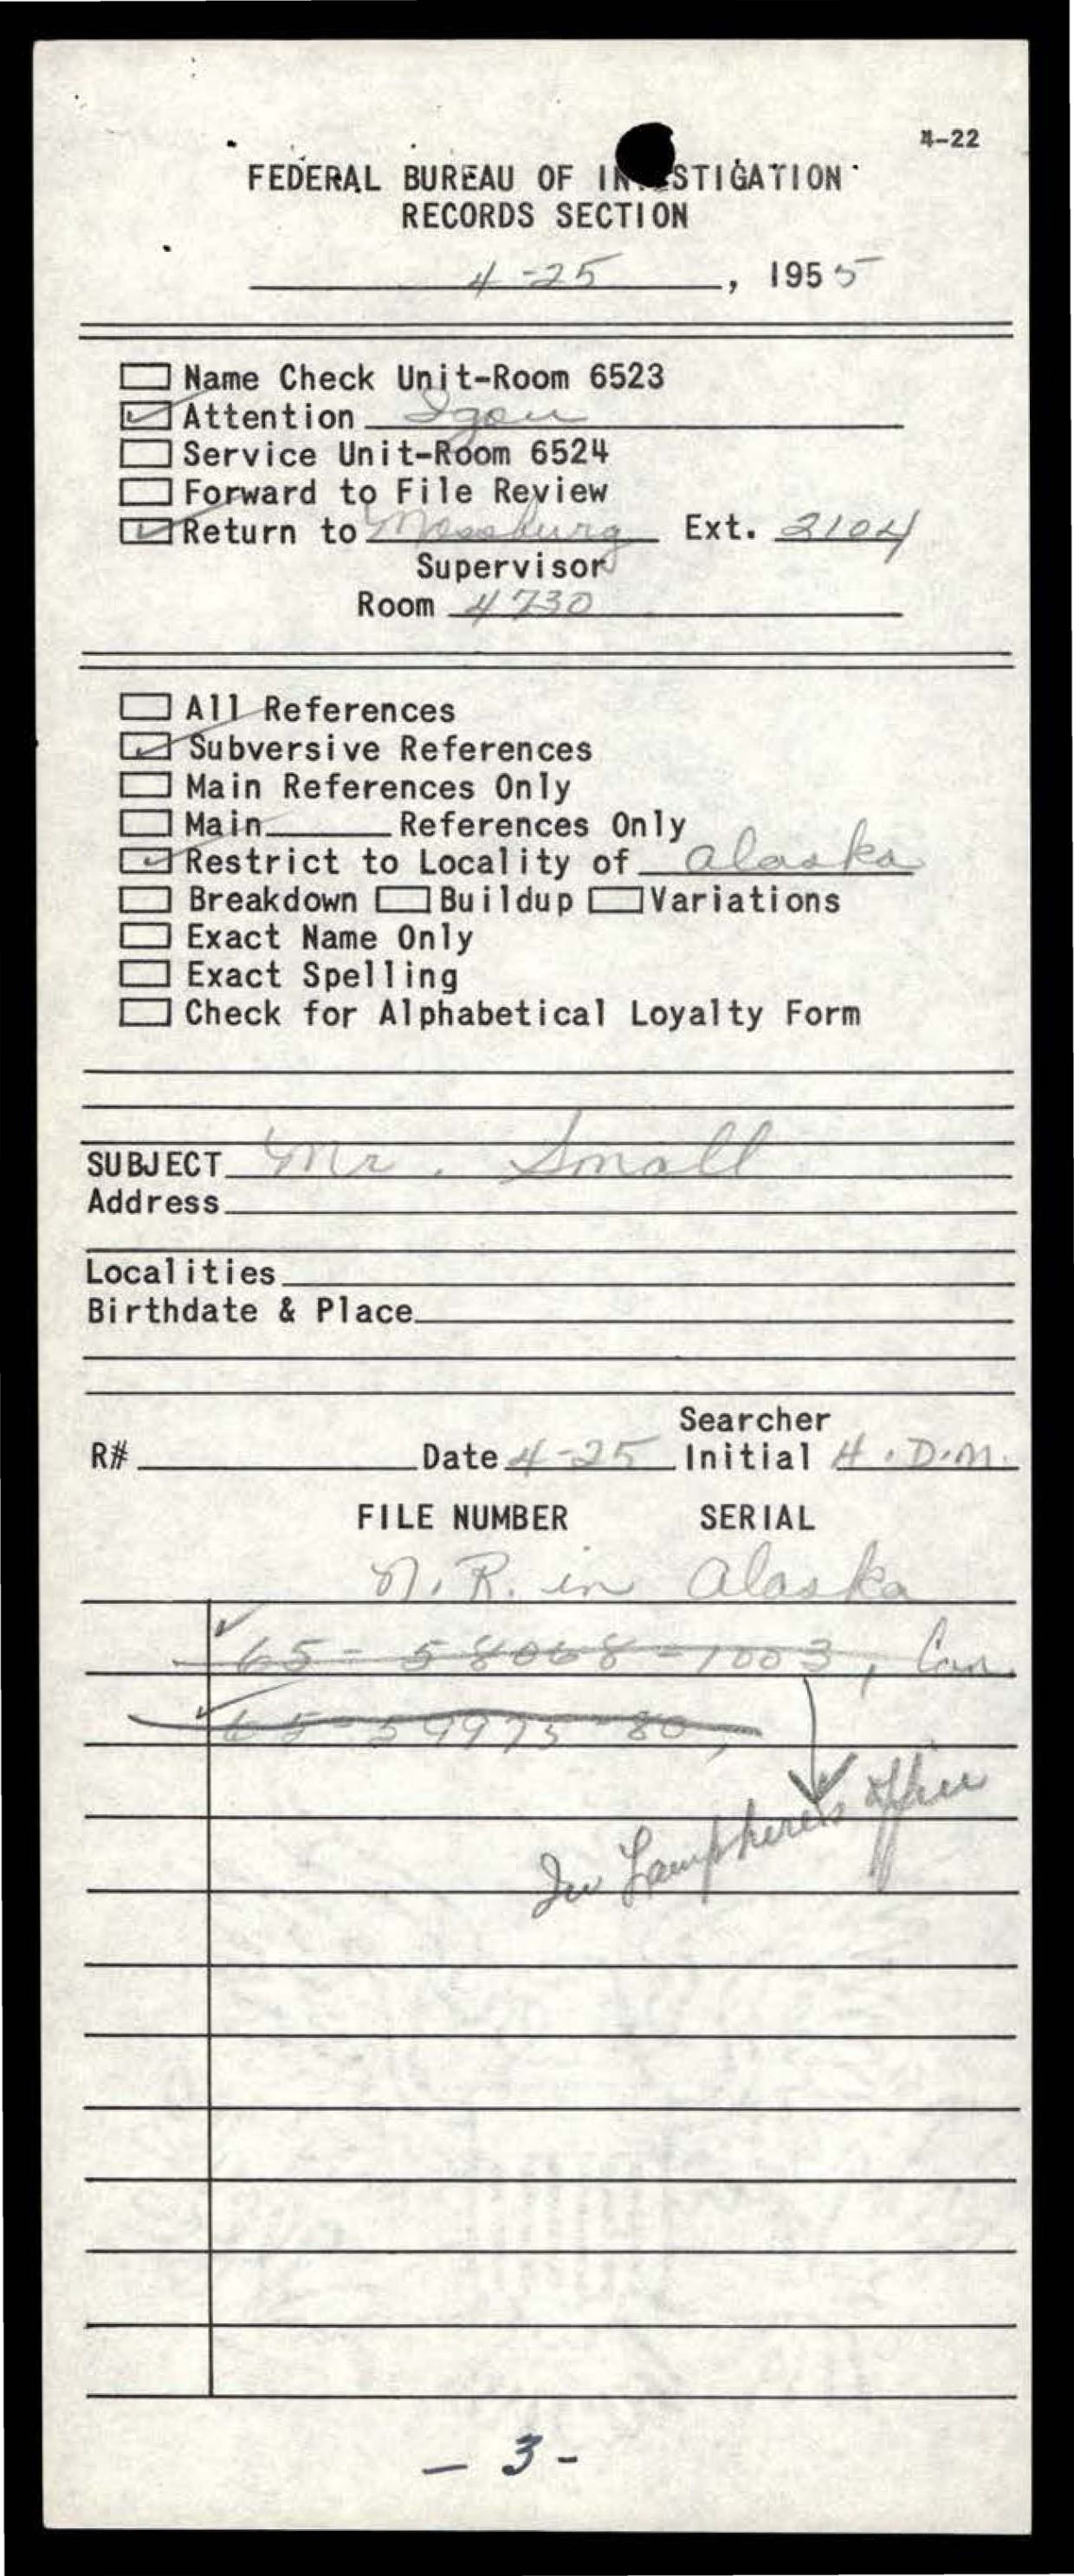 4-22
FEDERAL BUREAU OF IN STIGATION
RECORDS SECTION
4-25, 1955
Name Check Unit-Room 6523
Attention Igou
Service Unit-Room 6524
Forward to File Review
Return to Mossburg Ext. 2104
Supervisor
Room 4730
All References
Subversive References
Main References Only
Main References Only
Restrict to Locality of Alaska
Breakdown Buildup Variations
Exact Name Only
Exact Spelling
Check for Alphabetical Loyalty Form
SUBJECT Mr. Small
Address
Localities
Birthdate & Place
Searcher
R# Date 4-25 Initial H.D.M.
FILE NUMBER SERIAL
N.R. in Alaska
65-58068-1003,
65-59975-80,
In Lamphere's office
- 3 -